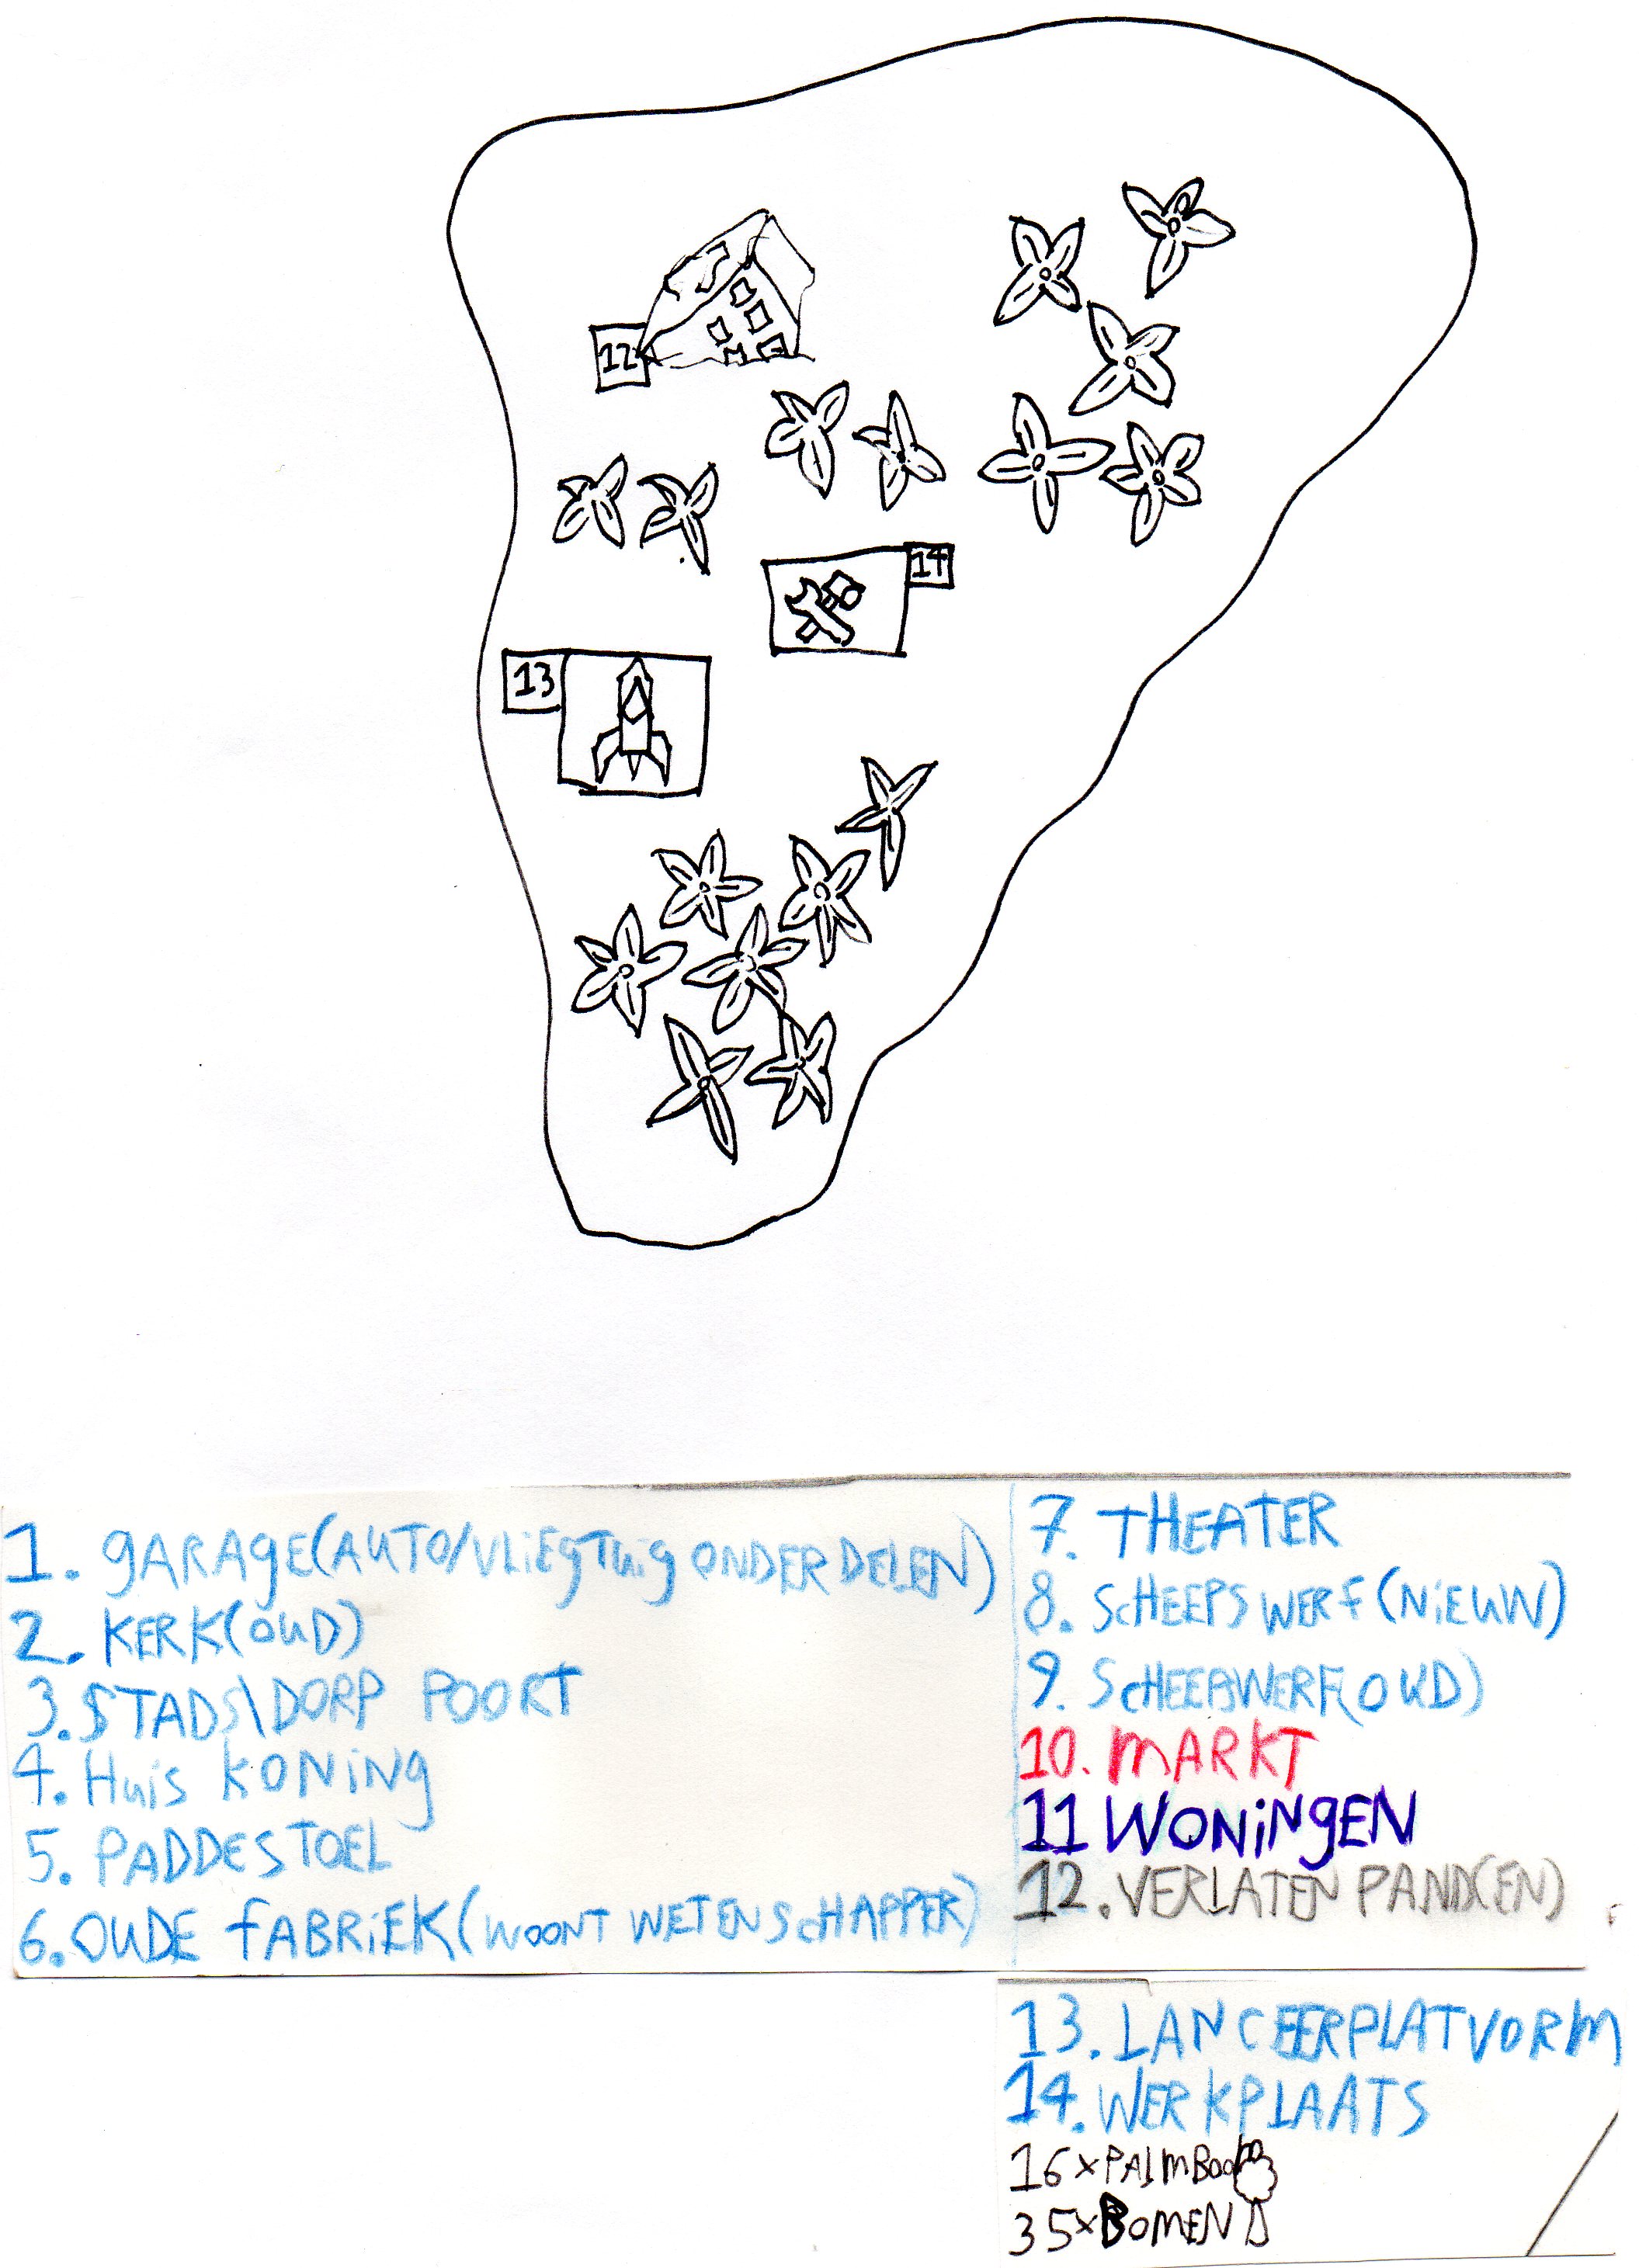 12
14
13
1. GARAGE(AUTO/VLIEGTUIG ONDERDELEN)
2. KERK(OUD)
3. STADS\DORP POORT
4. HUIS KONING
5. PADDESTOEL
6. OUDE FABRIEK(WOONT WETENSCHAPPER)
7. THEATER
8. SCHEEPSWERF(NIEUW)
9. SCHEEPSWERF(OUD)
10. MARKT
11 WONINGEN
12. VERLATEN PAND(EN)
13. LANCEERPLATVORM
14. WERKPLAATS
16x PALMBOOM
35x BOMEN